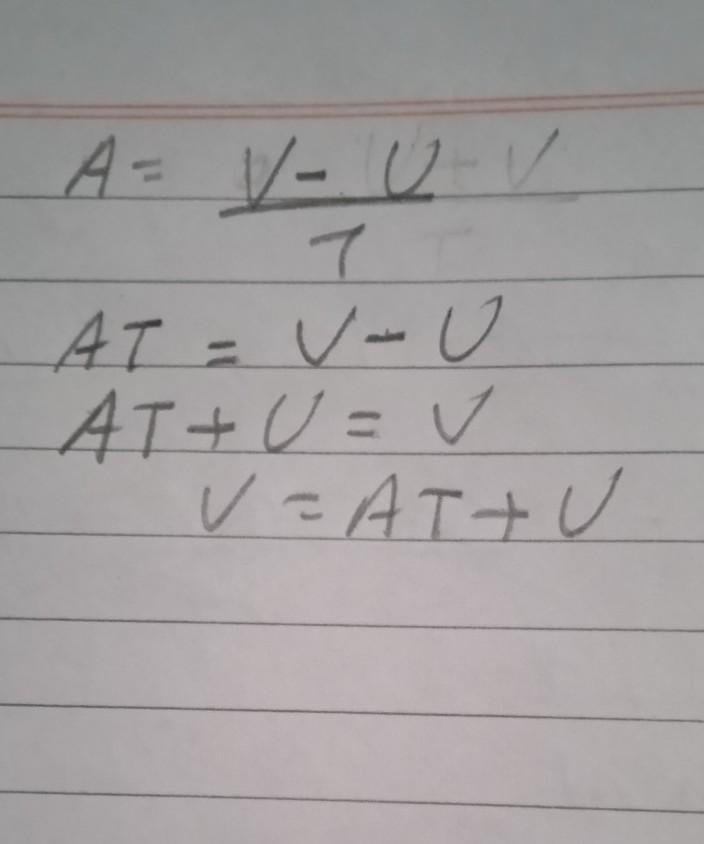 A = V - U
T
AT = V - U
AT + U = V
V = AT + U